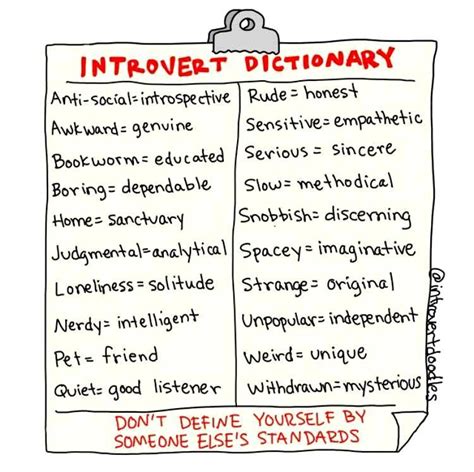 INTROVERT DICTIONARY
Anti-social=introspective
Awkward= genuine
Bookworm= educated
Boring= dependable
Home= sanctuary
Judgmental=analytical
Loneliness= solitude
Nerdy= intelligent
Pet= friend
Quiet= good listener
Rude= honest
Sensitive= empathetic
Serious= sincere
Slow= methodical
Snobbish= discerning
Spacey= imaginative
Strange= original
Unpopular= independent
Weird= unique
Withdrawn=mysterious
DON'T DEFINE YOURSELF BY
SOMEONE ELSE'S STANDARDS
@introvertdoodles